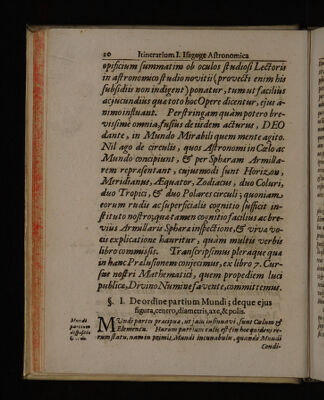 20 Itinerarium I. Isagoge Astronomica
opificium summatim ob oculos studiosi Lectoris
in astronomico studio novitii (provecti enim his
subsidiis non indigent) ponatur, tum ut facilius
ac jucundius quæ toto hoc Opere dicentur, ejus á-
nimo influant. Perstringam quàm potero bre-
vissimè omnia, fusius de iisdem acturus, DEO
dante, in Mundo Mirabili quem mente agito.
Nil ago de circulis, quos Astronomi in Cœlo ac
Mundo concipiunt, & per Sphæram Armilla-
rem repræsentant, cujusmodi sunt Horizon,
Meridianus, Æquator, Zodiacus, duo Coluri,
duo Tropici, & duo Polares circuli; quoniam
eorum rudis ac superficialis cognitio sufficit in-
stituto nostro, quæ tamen cognitio facilius ac bre-
vius Armillaris Sphæræ inspectione, & viva vo-
cis explicatione hauritur, quàm multis verbis
libro commissis. Transcripsimus pleraque quæ
in hanc Prælusionem conjecimus, ex libro 7. Cur-
sus nostri Mathematici, quem propediem luci
publicæ, Divino Numine favente, committemus.
§. I. De ordine partium Mundi; deque ejus
figura, centro, diametris, axe, & polis.
Mundi
partium
dispositio
MUndi partes præcipuæ, ut jam insinuavi, sunt Cœlum &
Elementa. Harum partium talis est in hoc quidem re-
rum statu, nam in primis Mundi incunabulis, quando Mundi
Condi-